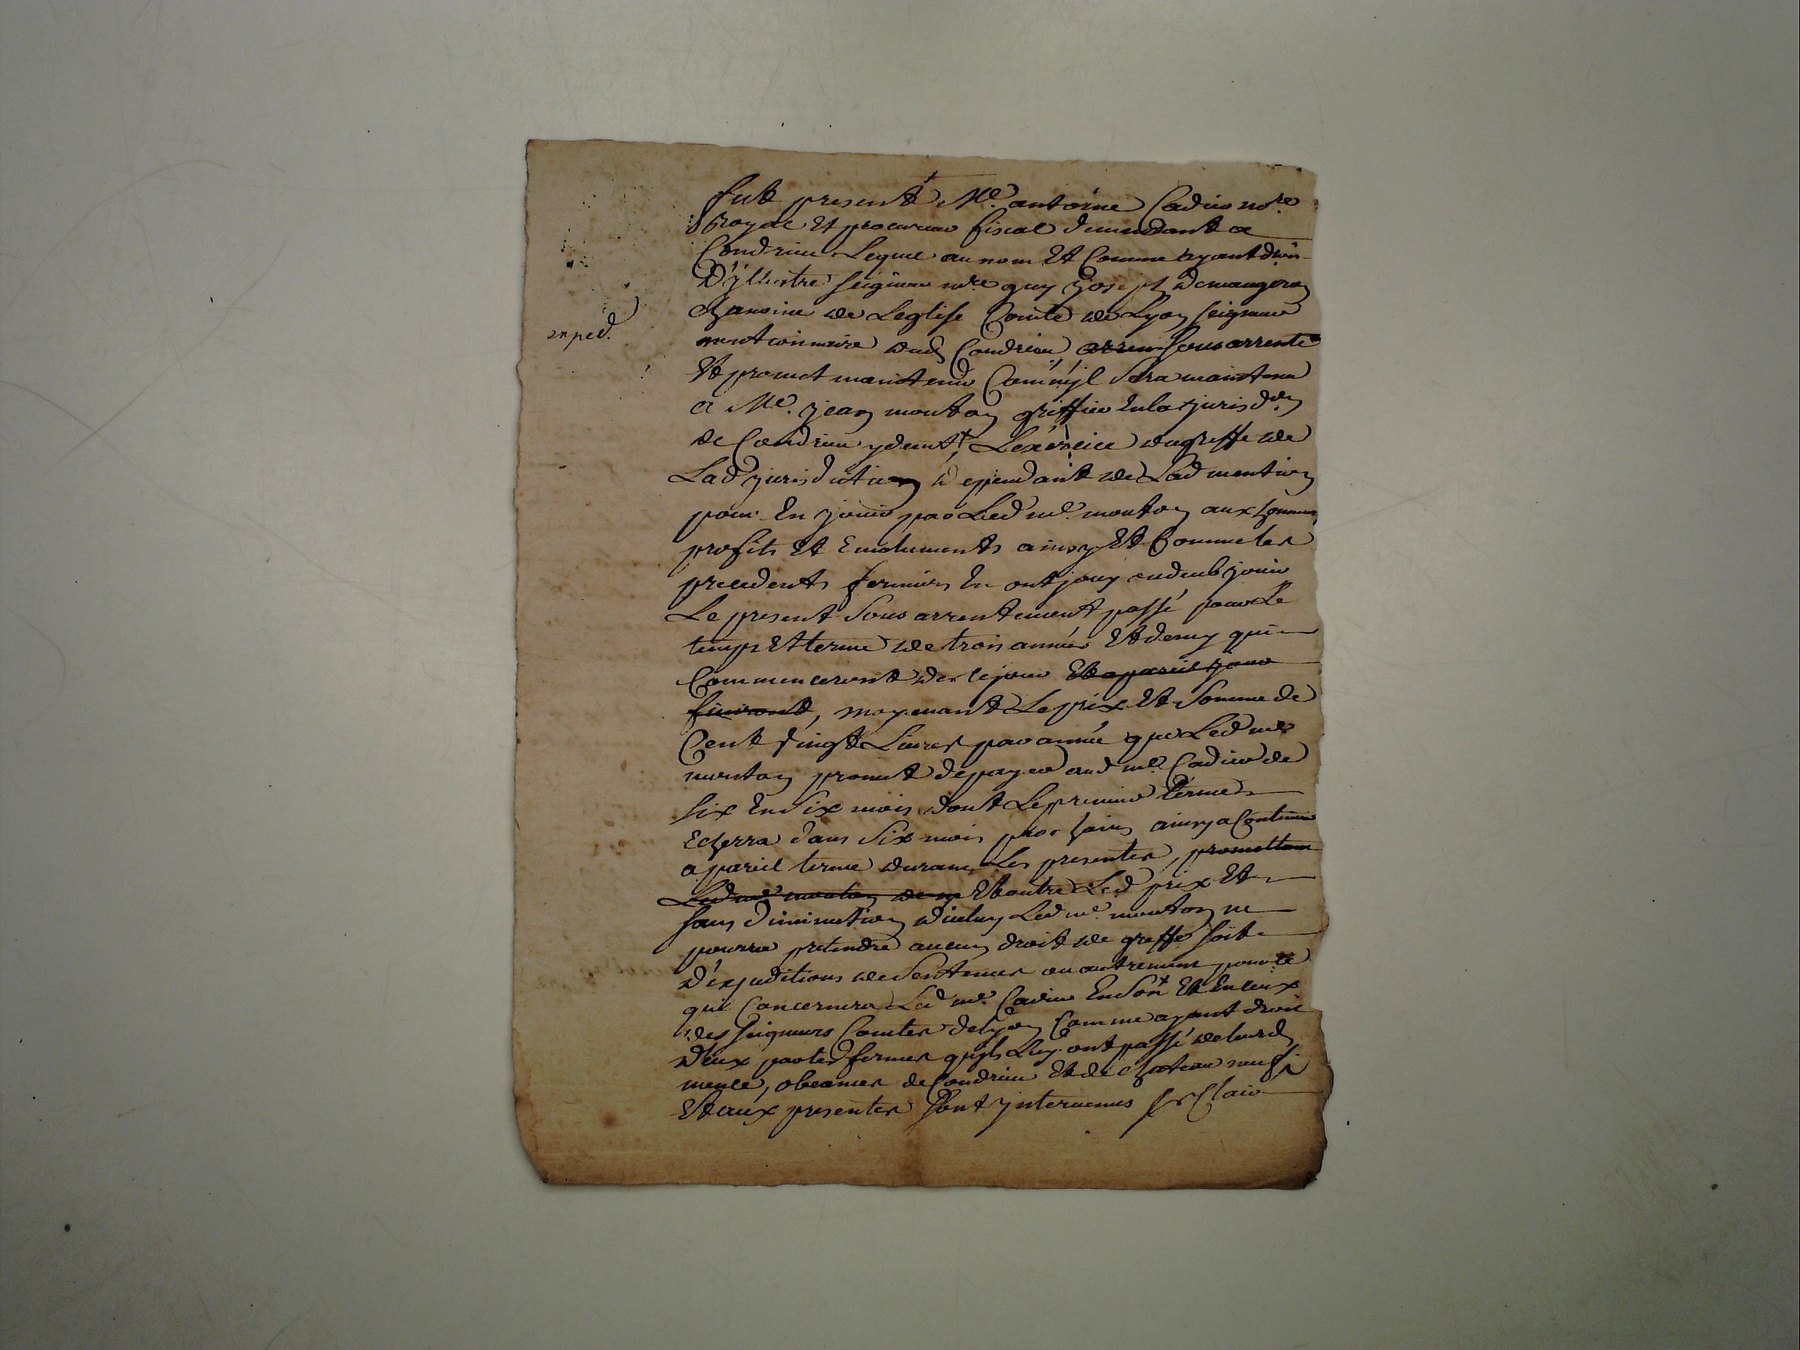 fut present Me. antoine Cadier nore
Royal Et procureur fiscal demeurant a
Condrieu Lequel au nom Et Comme ayant droit
D'yllustre seigneur mre guy Joseph Demaugiron
expéd.
Chanoine de Leglise Comte de Lyon seigneur
mentionnaire dud Condrieu arren sous arrente
Et promet maintenir Comm'jl sera maintenu
a Me. jean mouton griffier En la jurisdon
de Condrieu y demt, Lexercice du greffe de
Lad jurisdiction deppendant de Lad mention
pour En jouir par Led me. mouton aux honneurs
profits Et Emoluments ainsy Et Comme les
precedents fermiers En ont jouy ou deub jouir
Le present sous arrentement passé pour Le
temps Et terme de trois années Et demy qui
Commenceront de ce jour Et a pareil jour
finiront, moyenant Le prix Et Somme de
Cent vingt Livres par année que Led me
mouton promet de payer aud me. Cadier de
six En six mois dont Le premier terme
Echerra dans six mois prochains ainsy a Continuer
a pareil terme durant Les presentes, promettant
Led me mouton de Et outre Led prix Et
sans diminution d'iceluy Led me. mouton ne
pourra pretendre aucun droit de greffe soit
d'expeditions de Sentences ou autrement pour ce
qui Concernera Led me. Cadier En Son Et En ceux
des seigneurs Comtes de Lyon Comme ayant droit
d'eux par les fermes qu'ils Luy ont passé de leurd
mence, obeances de Condrieu Et de Chateauneuf
Et aux presentes sont jntervenus sr Clair